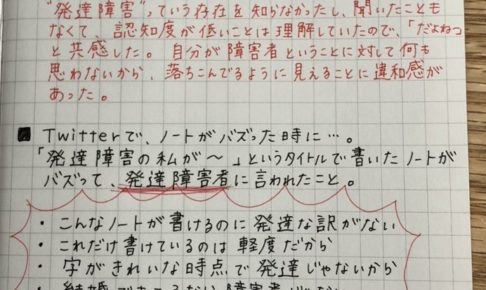 "発達障害"っていう存在を知らなかったし、聞いたことも
なくて、認知度が低いことは理解していたので、「だよねっ
と共感した。自分が障害者ということに対して何も
思わないから、落ちこんでるように見えることに違和感が
あった。
Twitterで、ノートがバズった時に…。
「発達障害の私が〜」というタイトルで書いたノートが
バズって、発達障害者に言われたこと。
・こんなノートが書けるのに発達な訳がない
・これだけ書けているのは軽度だから
・字がきれいな時点で発達じゃないから